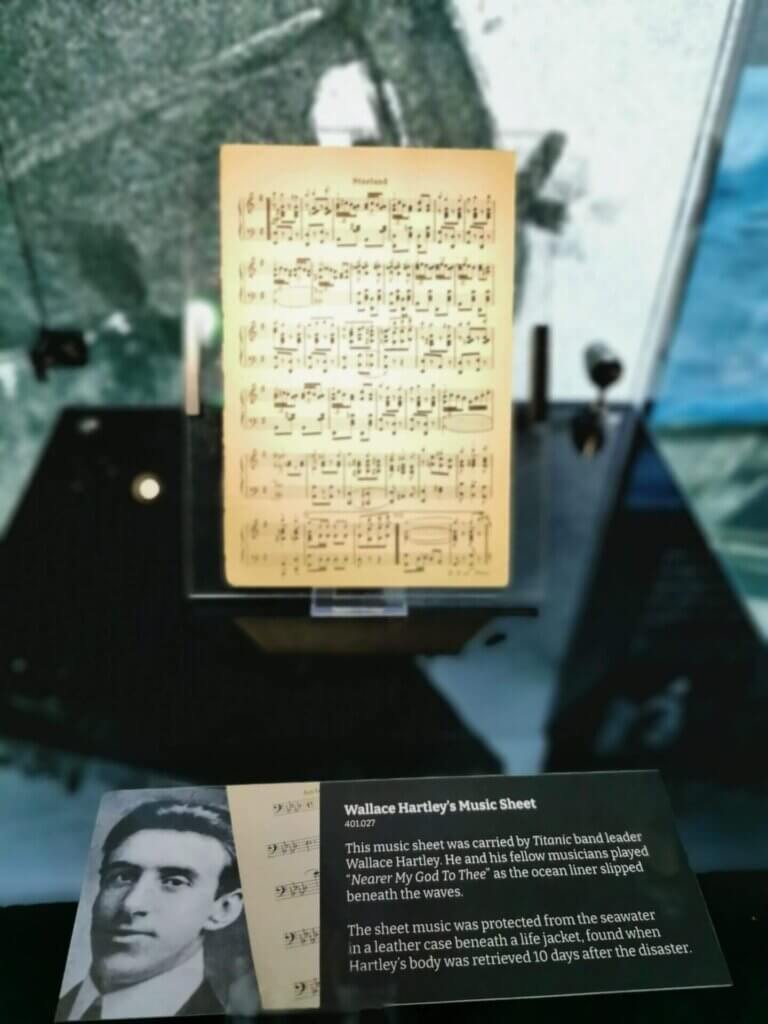 Wallace Hartley's Music Sheet
401.027
This music sheet was carried by Titanic band leader
Wallace Hartley. He and his fellow musicians played
"Nearer My God To Thee" as the ocean liner slipped
beneath the waves.
The sheet music was protected from the seawater
in a leather case beneath a life jacket, found when
Hartley's body was retrieved 10 days after the disaster.